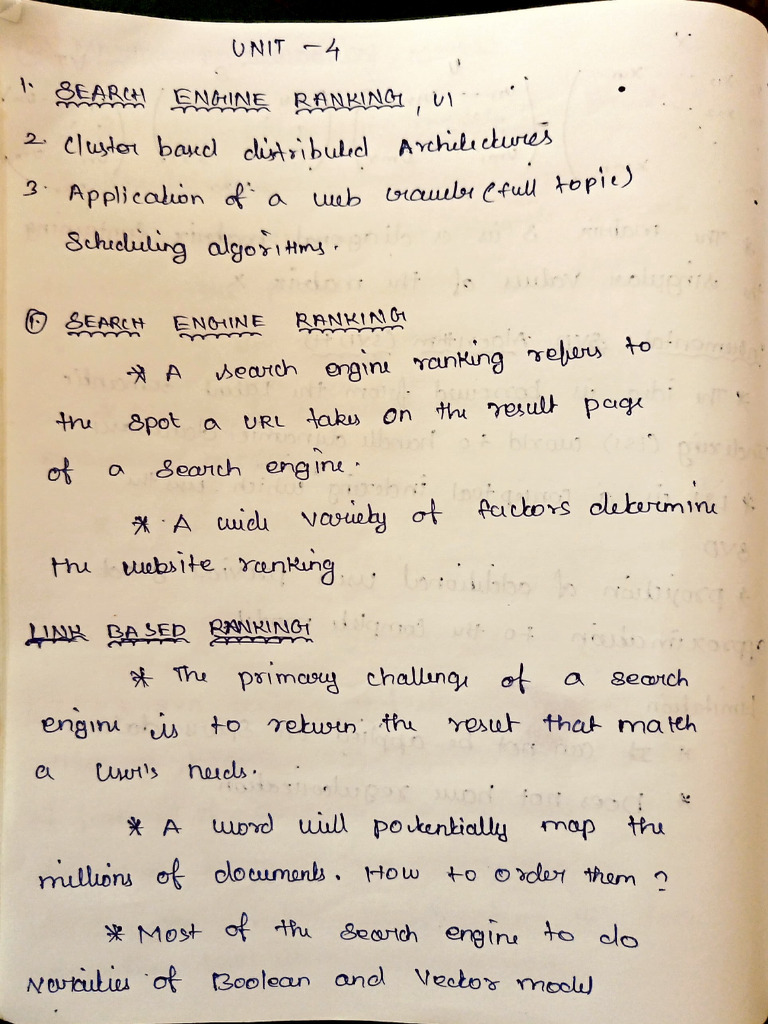 UNIT - 4
1. SEARCH ENGINE RANKING, UI
2. Cluster based distributed Architectures
3. Application of a web crawler (full topic)
Scheduling algorithms.
1. SEARCH ENGINE RANKING
* A search engine ranking refers to
the spot a URL takes on the result page
of a search engine.
* A wide variety of factors determine
the website ranking.
LINK BASED RANKING
* The primary challenge of a search
engine is to return the result that match
a user's needs.
* A word will potentially map the
millions of documents. How to order them ?
* Most of the search engine to do
varieties of Boolean and Vector model